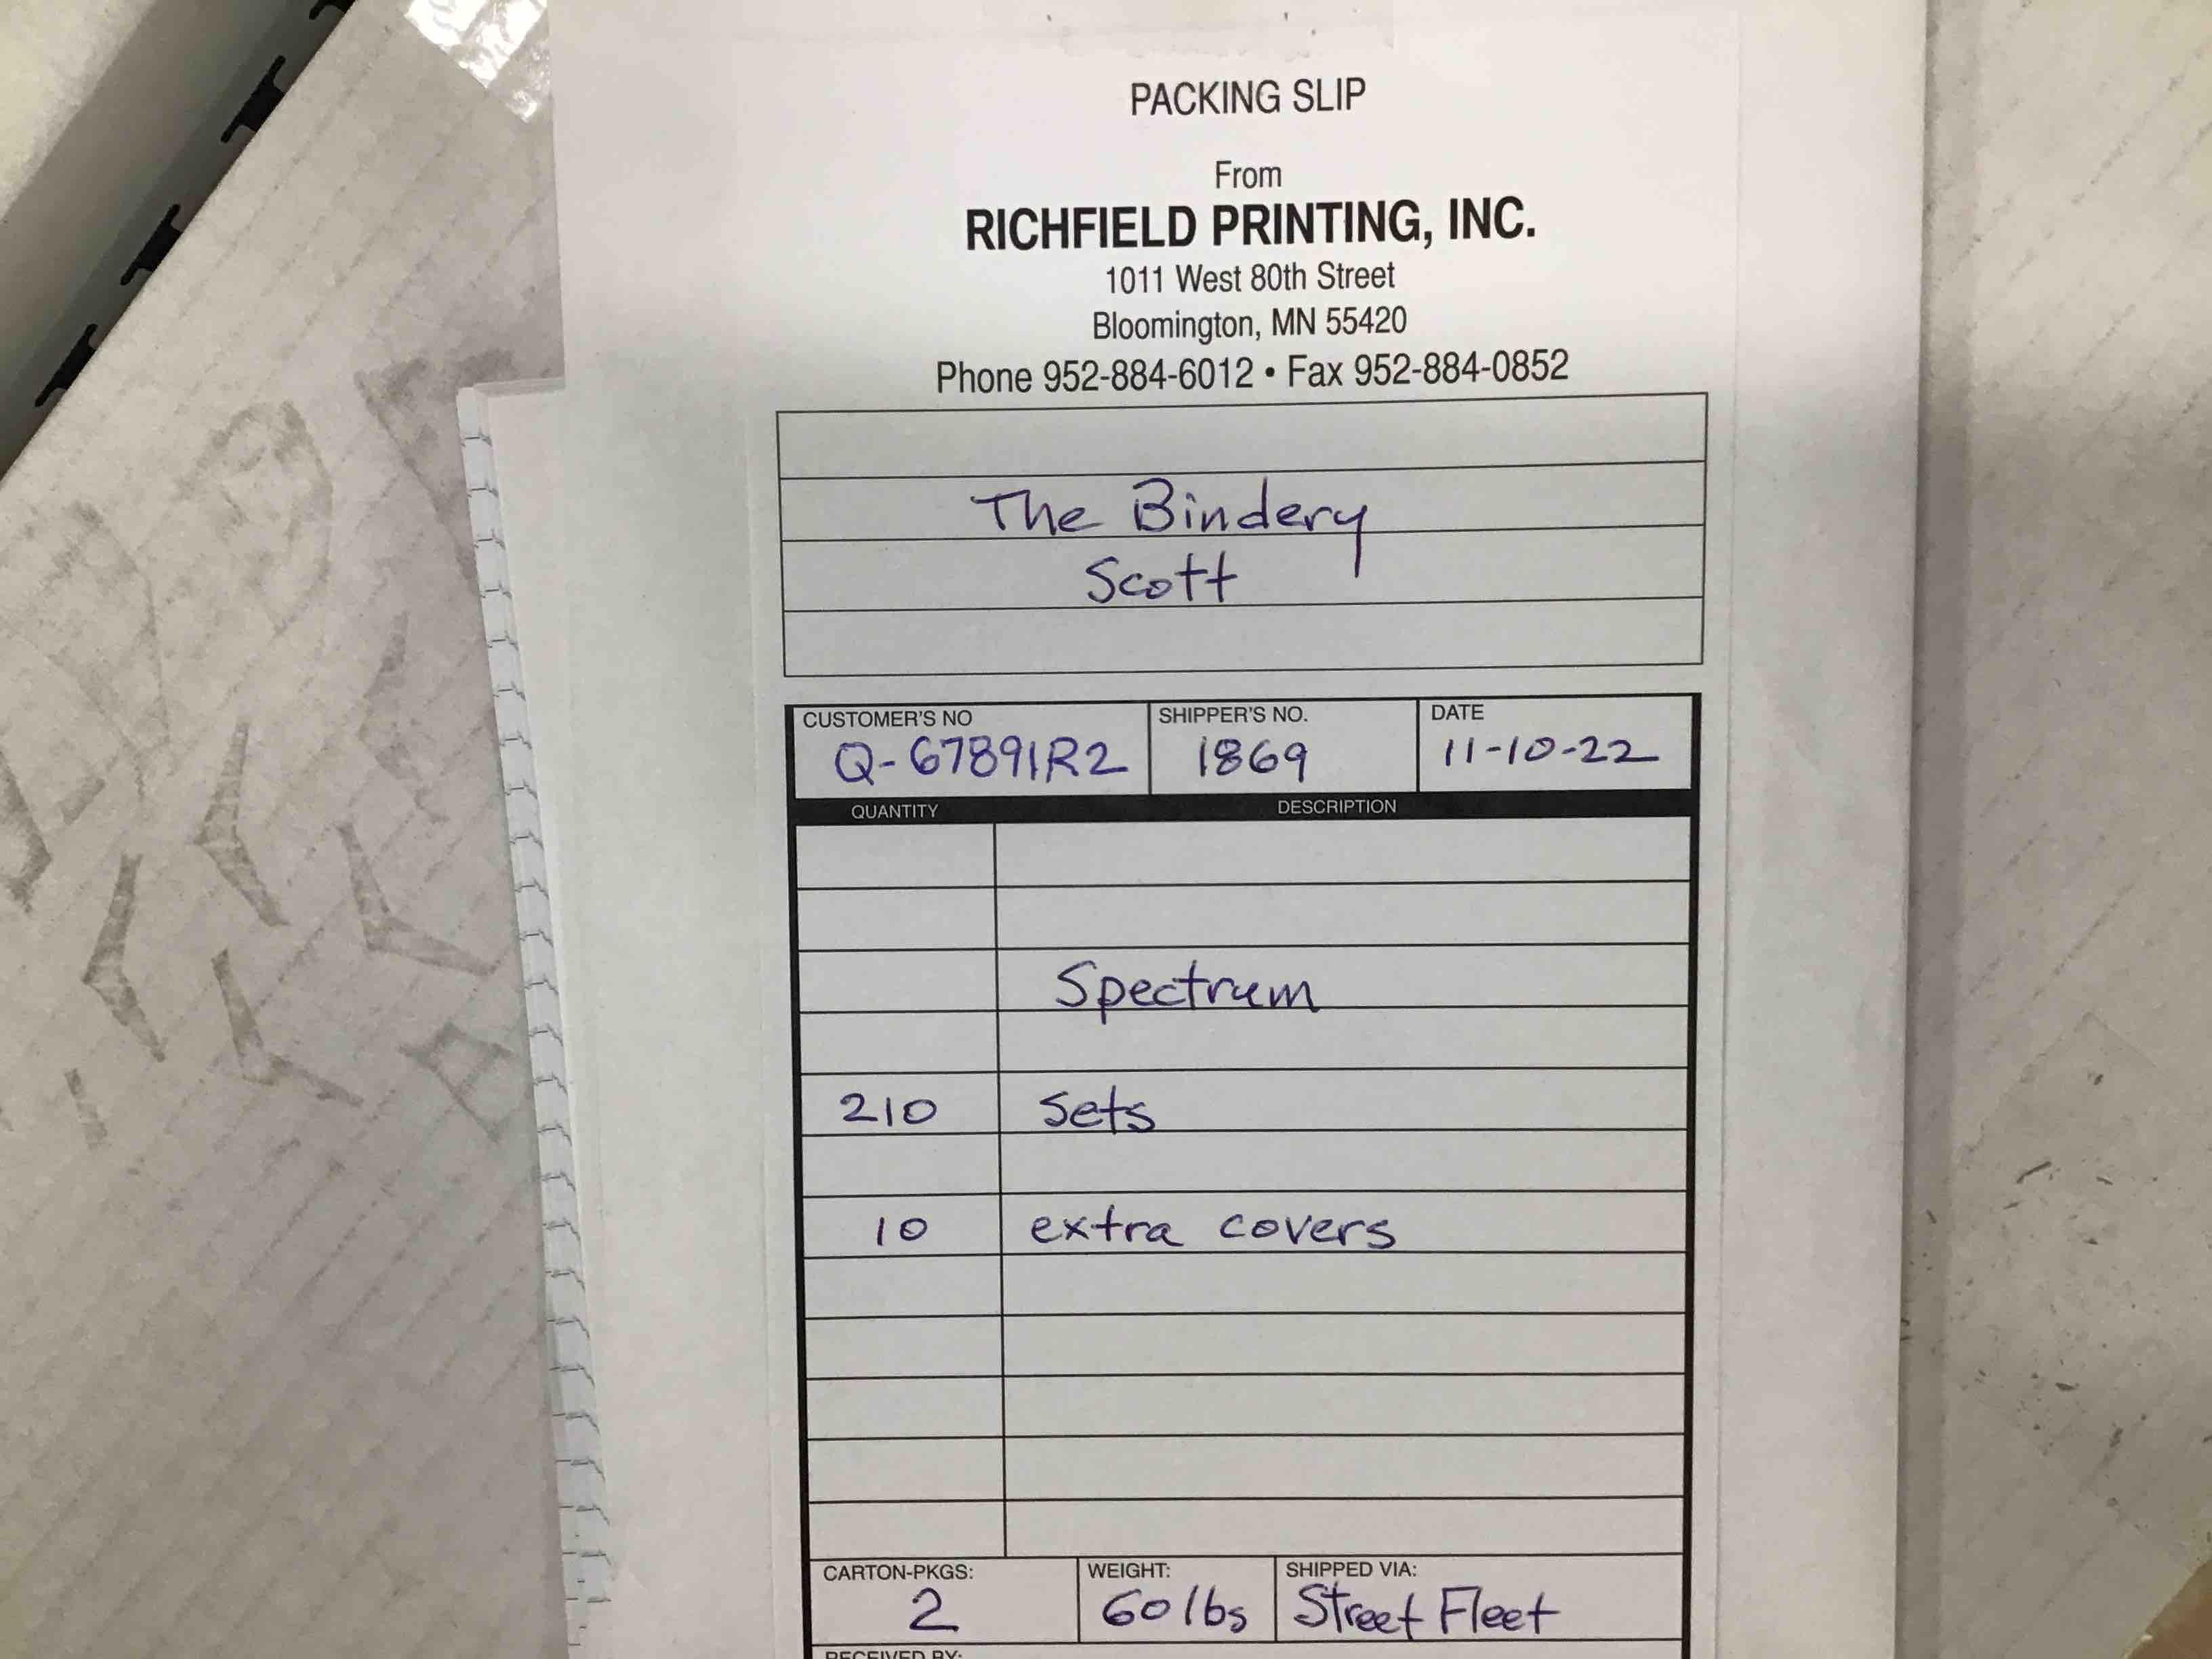 PACKING SLIP
From
RICHFIELD PRINTING, INC.
1011 West 80th Street
Bloomington, MN 55420
Phone 952-884-6012 • Fax 952-884-0852
The Bindery
Scott
CUSTOMER'S NO SHIPPER'S NO. DATE
Q-67891R2 1869 11-10-22
QUANTITY DESCRIPTION
Spectrum
210 Sets
10 extra covers
CARTON-PKGS: WEIGHT: SHIPPED VIA:
2 60 lbs Street Fleet
RECEIVED BY: